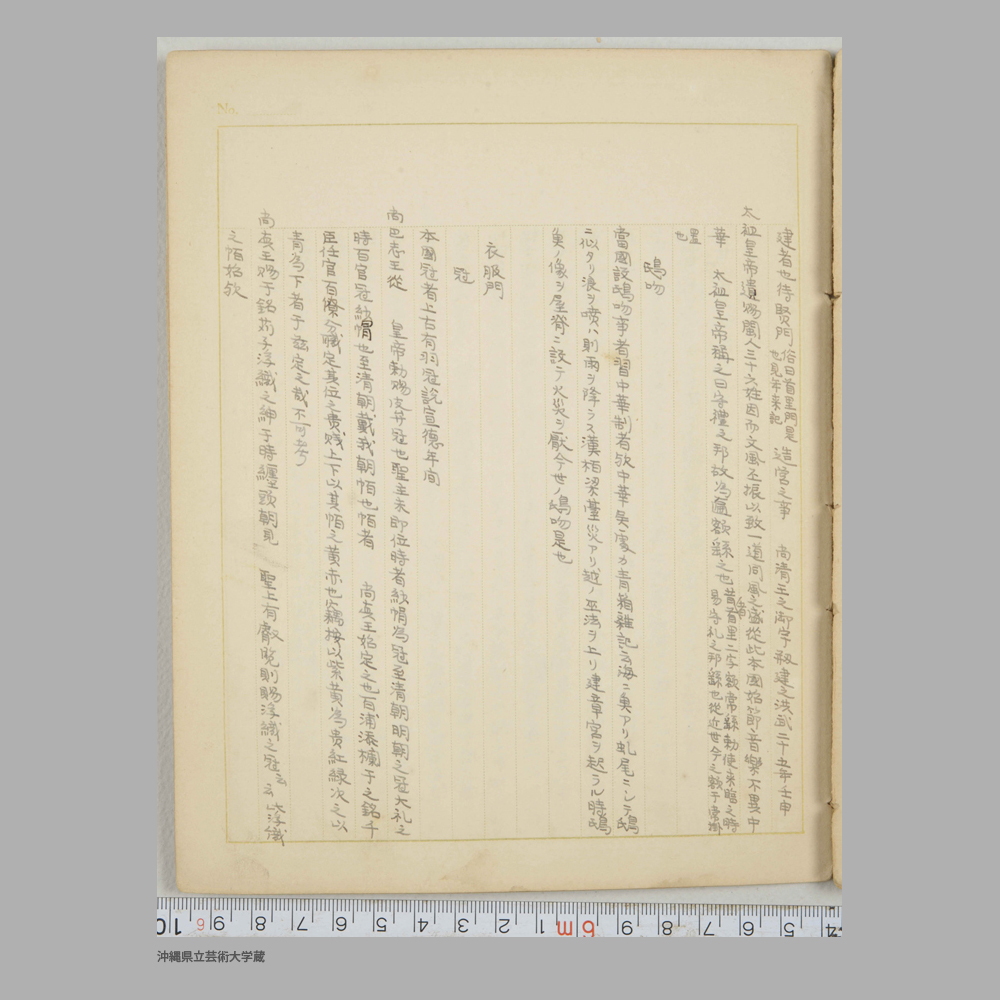 No.
建者也待賢門俗曰首里門是也見于来記 造営之事 尚清王之御宇叙建之洪武二十五年壬申
太祖皇帝遺賜閩人三十六姓因而文風丕振以致一道同風之盛従此本國始節音樂不異中
華 太祖皇帝稱之曰守禮之邦故為匾額懸之也昔者首里二字額常懸勅使来臨之時易守礼之邦懸也從近世今之額于常掛
置也
鴟吻
當國設鴟吻事者習中華制者欤中華吳處カ青箱雜記云海ニ魚アリ虬尾ニシテ鴟
ニ似タリ浪ヲ噴ハ則雨ヲ降ラス漢栢梁臺災アリ越ノ巫法ヲ上リ建章宮ヲ起ラル時鴟
魚ノ像ヲ屋脊ニ設テ火災ヲ厭今世ノ鴟吻是也
衣服門
冠
本國冠者上古有羽冠説宣德年间
尚巴志王從 皇帝勅賜皮弁冠也聖主未即位時者紗帽為冠至清朝明朝之冠大礼之
時百官冠紗帽也至清朝戴我朝帕也帕者 尚真王始定之也百浦添欄干之銘千
臣任官百僚分職定其位之貴賤上下以其帕之黄赤也竊按以紫黄為貴紅緑次之以
青為下者于茲定之哉不可考
尚真王賜于銘苅子浮織之紳于時纏頭朝見 聖上有叡覧則賜浮織之冠云云 此浮織
之帕始欤
沖縄県立芸術大学蔵